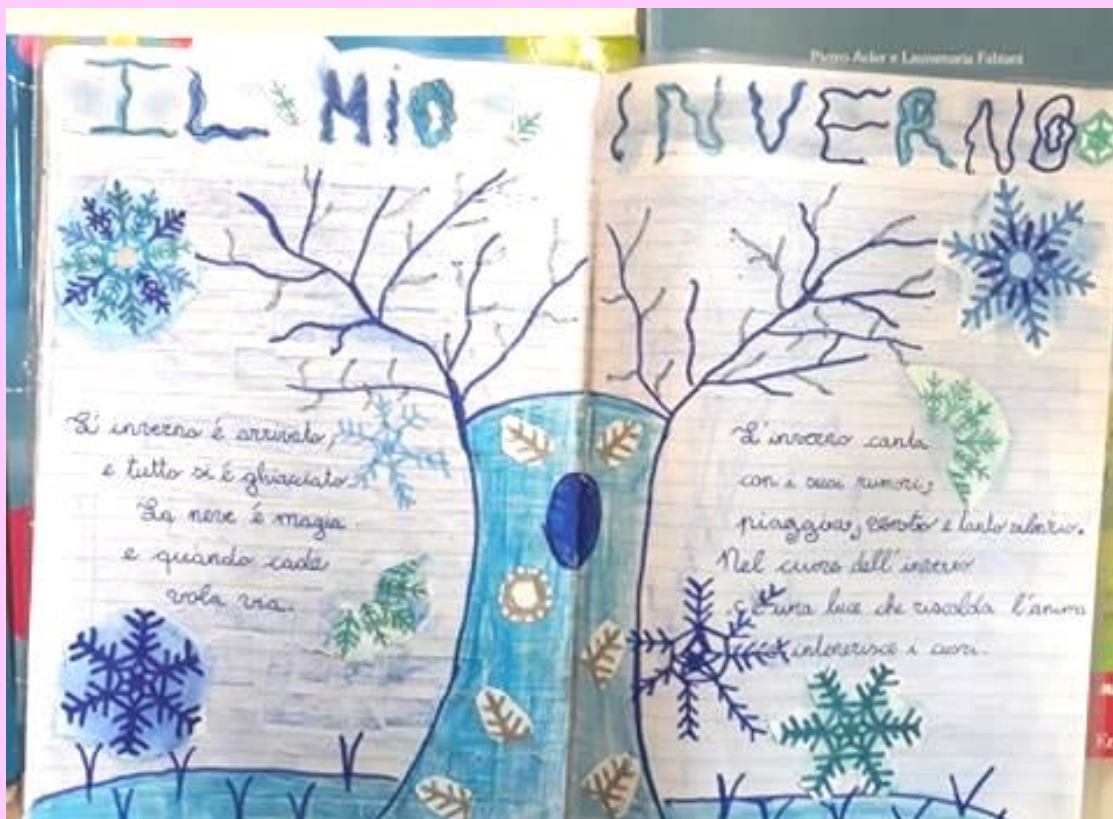 Pietro Adler e Lauramaria Fabiani
IL MIO INVERNO
L'inverno é arrivato,
e tutto si é ghiacciato,
La neve é magia
e quando cade
vola via.
L'inverno canta
con i suoi rumori,
pioggia, vento e tanto silenzio.
Nel cuore dell'inverno
c'é una luce che riscalda l'anima
intenerisce i cuori.